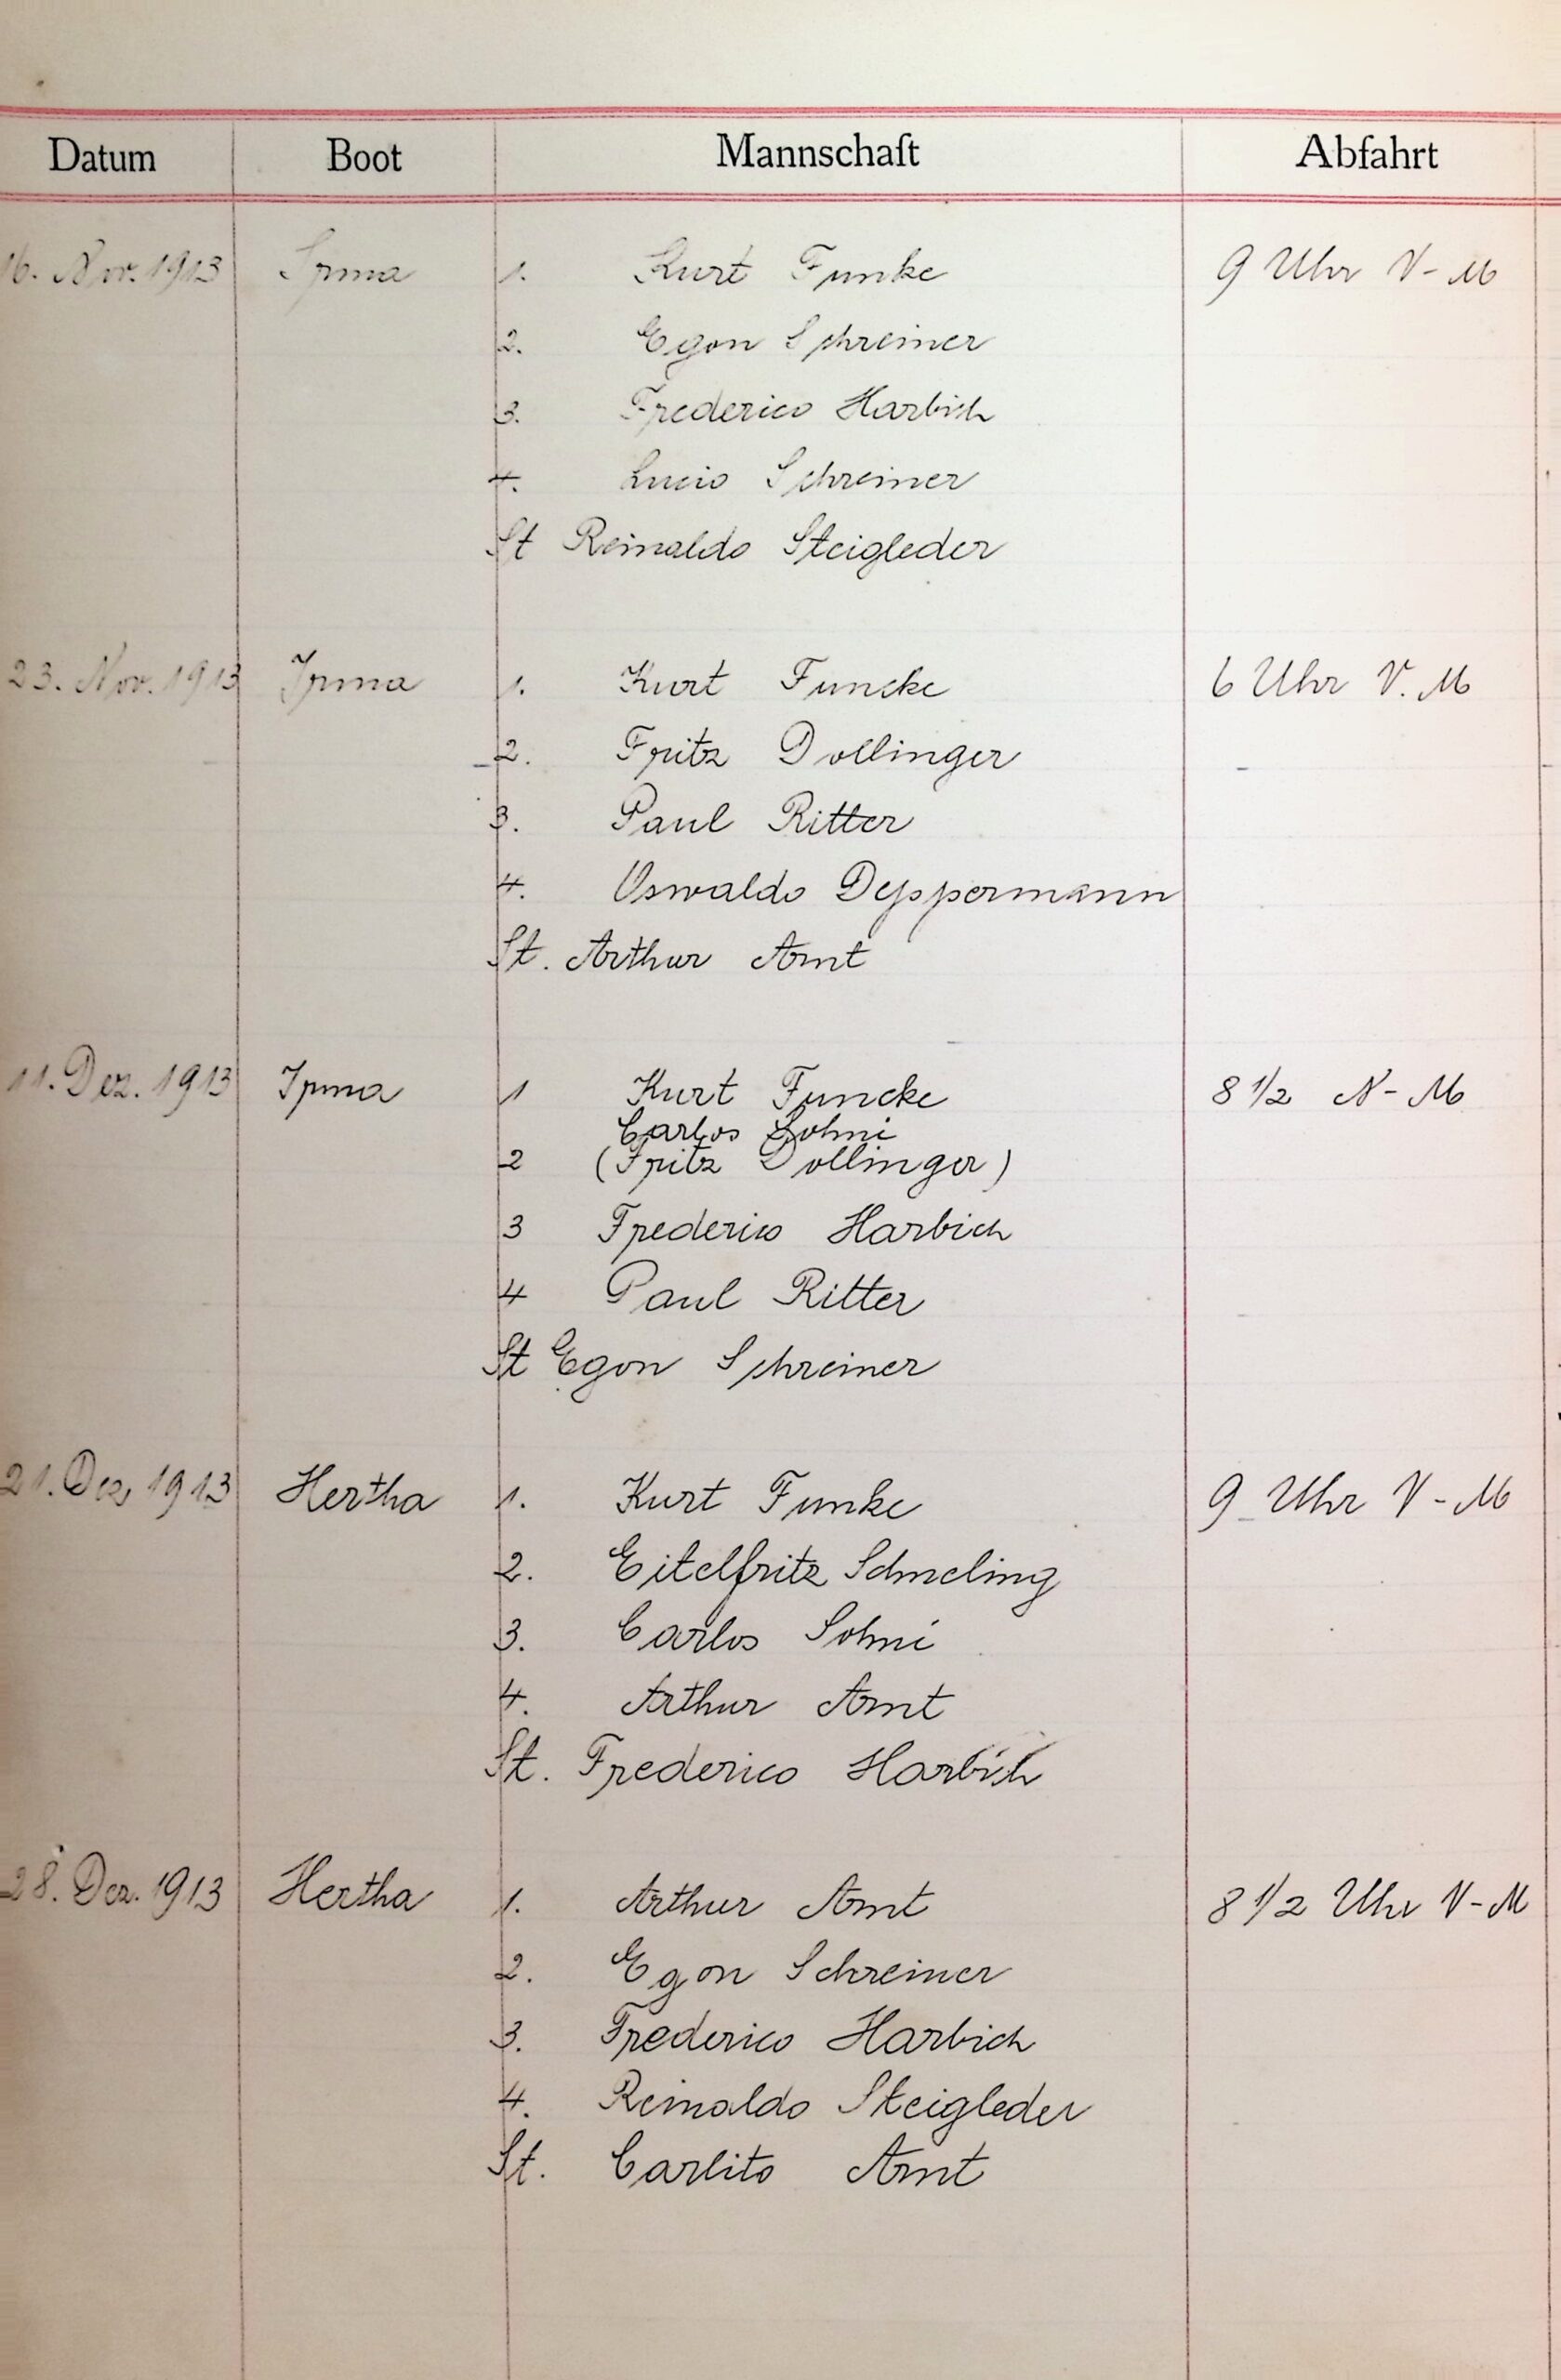 Datum Boot Mannschaft Abfahrt
16. Nov. 1913 Irma 1. Kurt Funke 9 Uhr V-M
2. Egon Schreiner
3. Frederico Harbich
4. Lucio Schreiner
St Reinaldo Steigleder
23. Nov. 1913 Irma 1. Kurt Funcke 6 Uhr V.M
2. Fritz Dollinger
3. Paul Ritter
4. Oswaldo Deppermann
St. Arthur Arnt
11. Dez. 1913 Irma 1 Kurt Funcke 8 1/2 N-M
Carlos Sohni
2 (Fritz Dollinger)
3 Frederico Harbich
4 Paul Ritter
St Egon Schreiner
21. Dez 1913 Hertha 1. Kurt Funke 9 Uhr V-M
2. Eitelfritz Schmeling
3. Carlos Sohni
4. Arthur Arnt
St. Frederico Harbich
28. Dez. 1913 Hertha 1. Arthur Arnt 8 1/2 Uhr V-M
2. Egon Schreiner
3. Frederico Harbich
4. Reinaldo Steigleder
St. Carlito Arnt